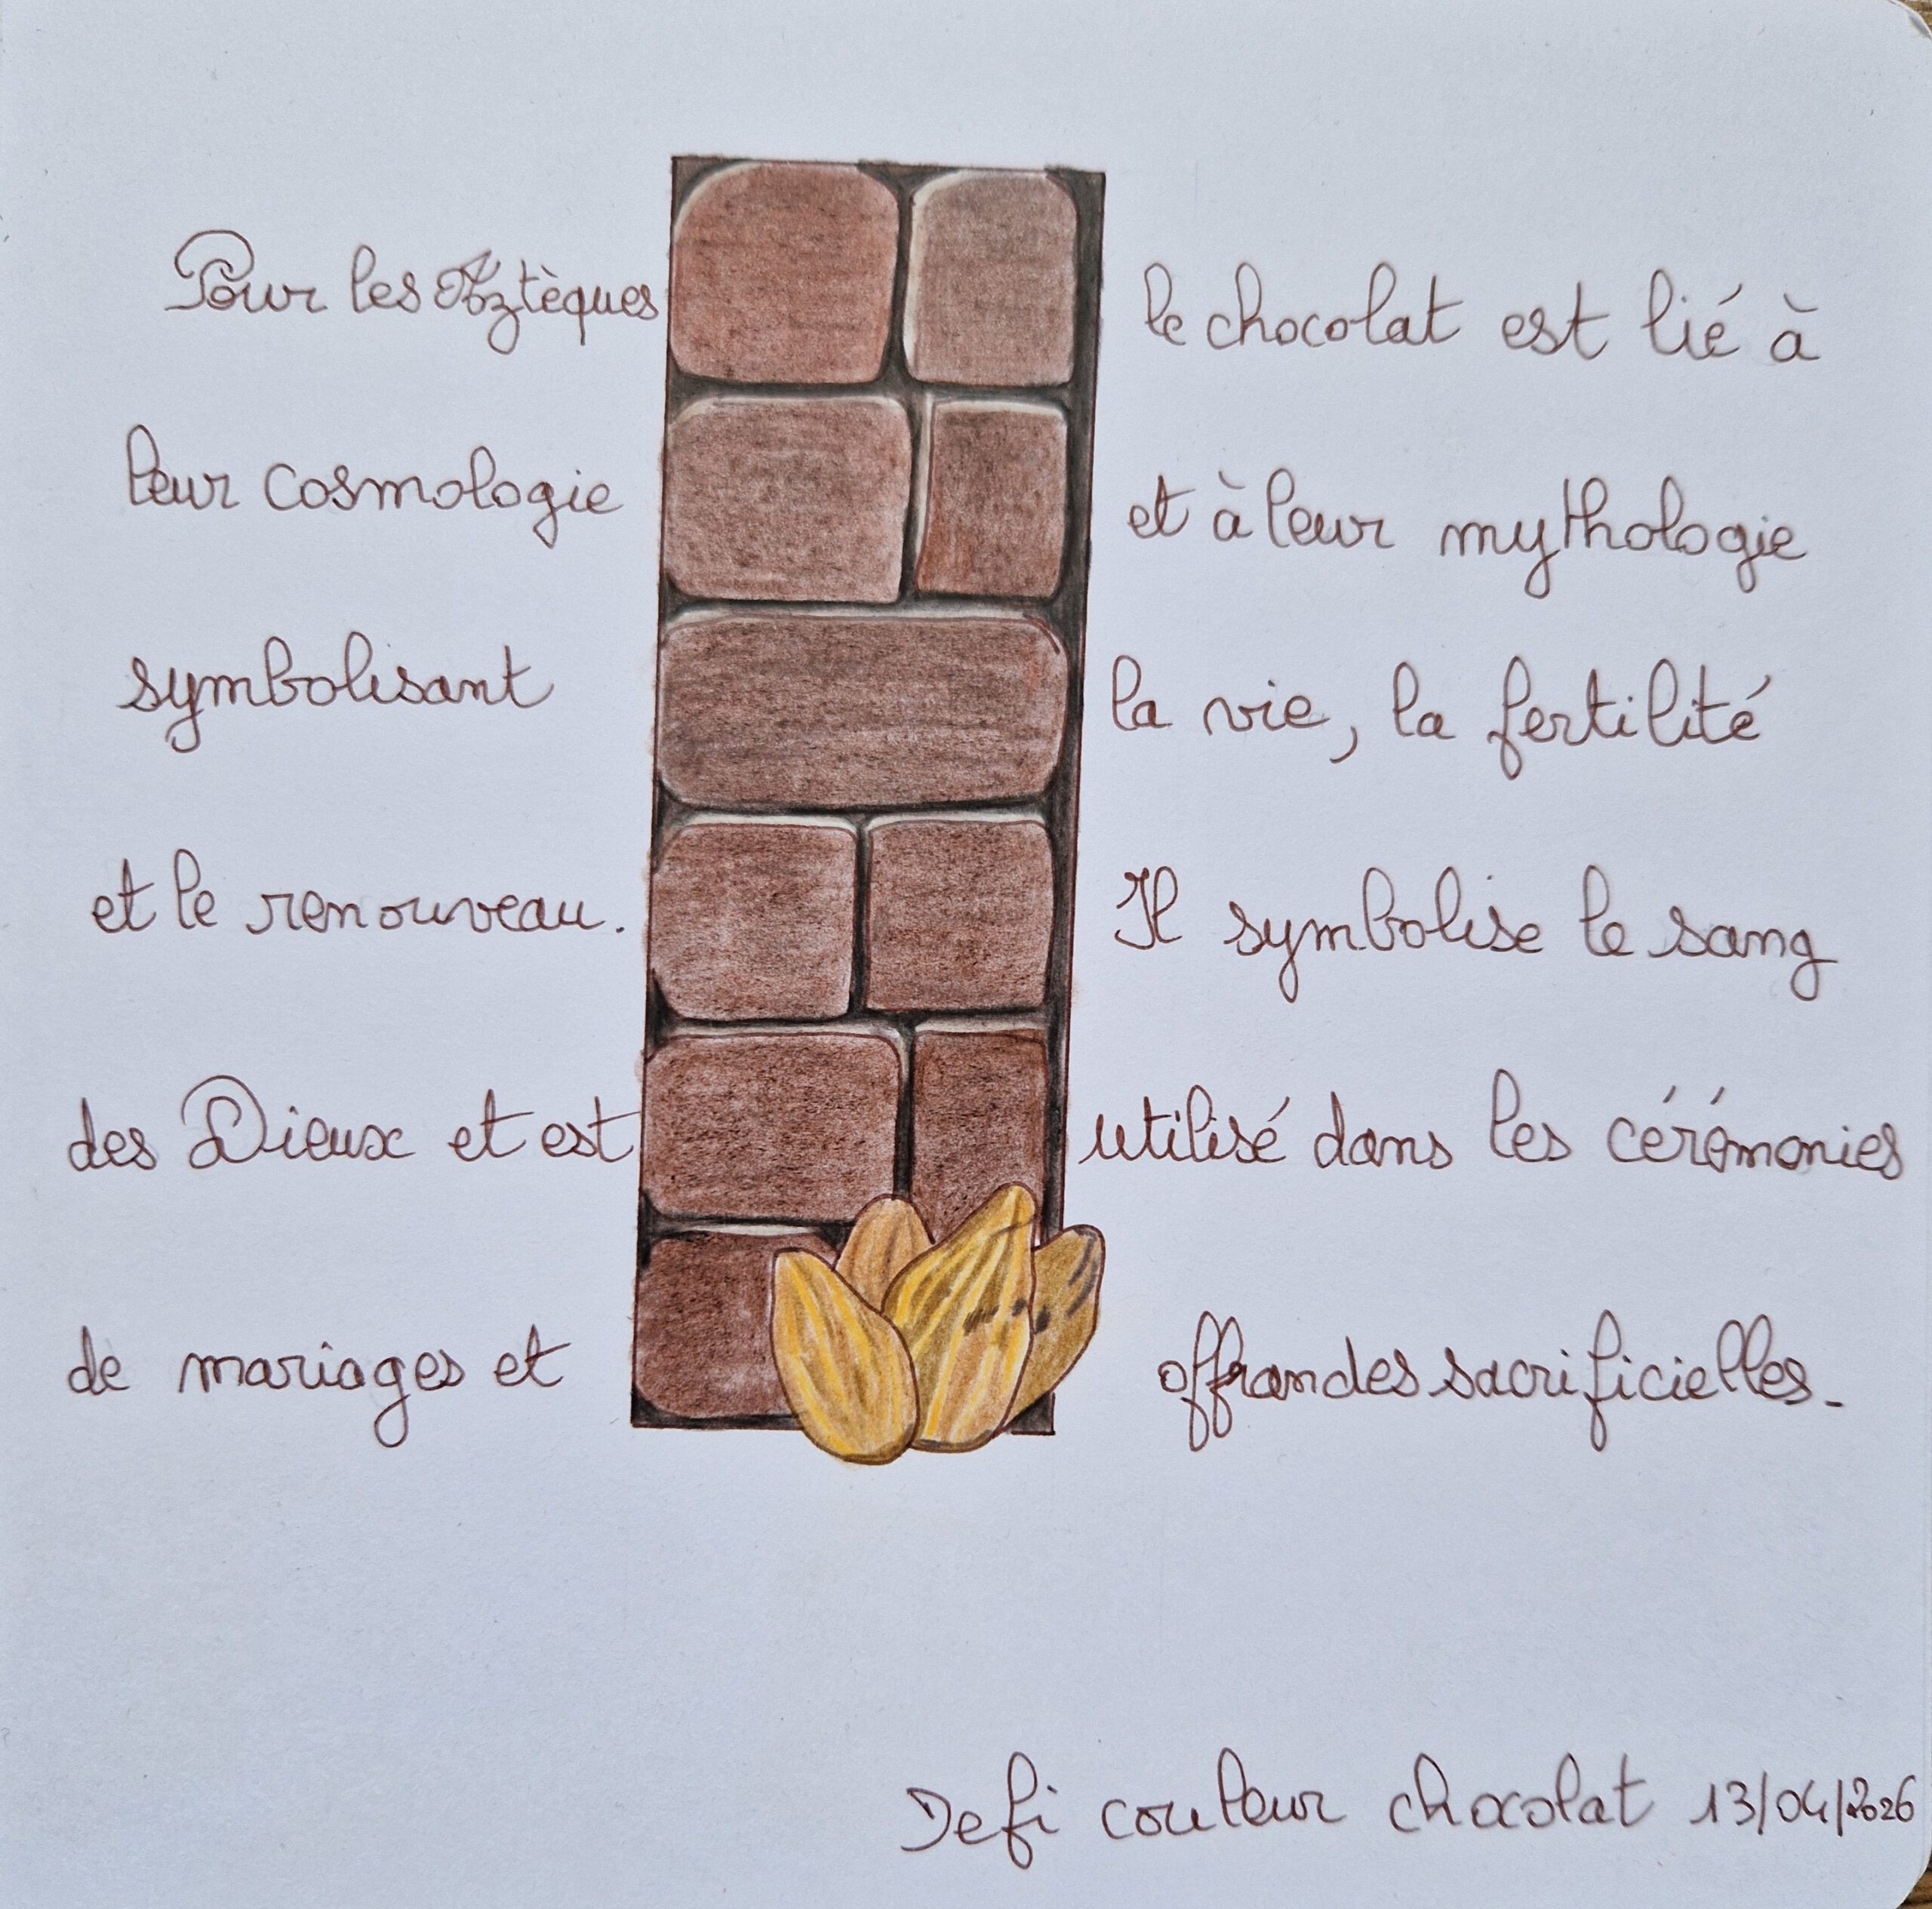 Pour les Aztèques le chocolat est lié à
leur cosmologie et à leur mythologie
symbolisant la vie, la fertilité
et le renouveau. Il symbolise le sang
des Dieux et est utilisé dans les cérémonies
de mariages et offrandes sacrificielles.
Defi couleur chocolat 13/04/2026